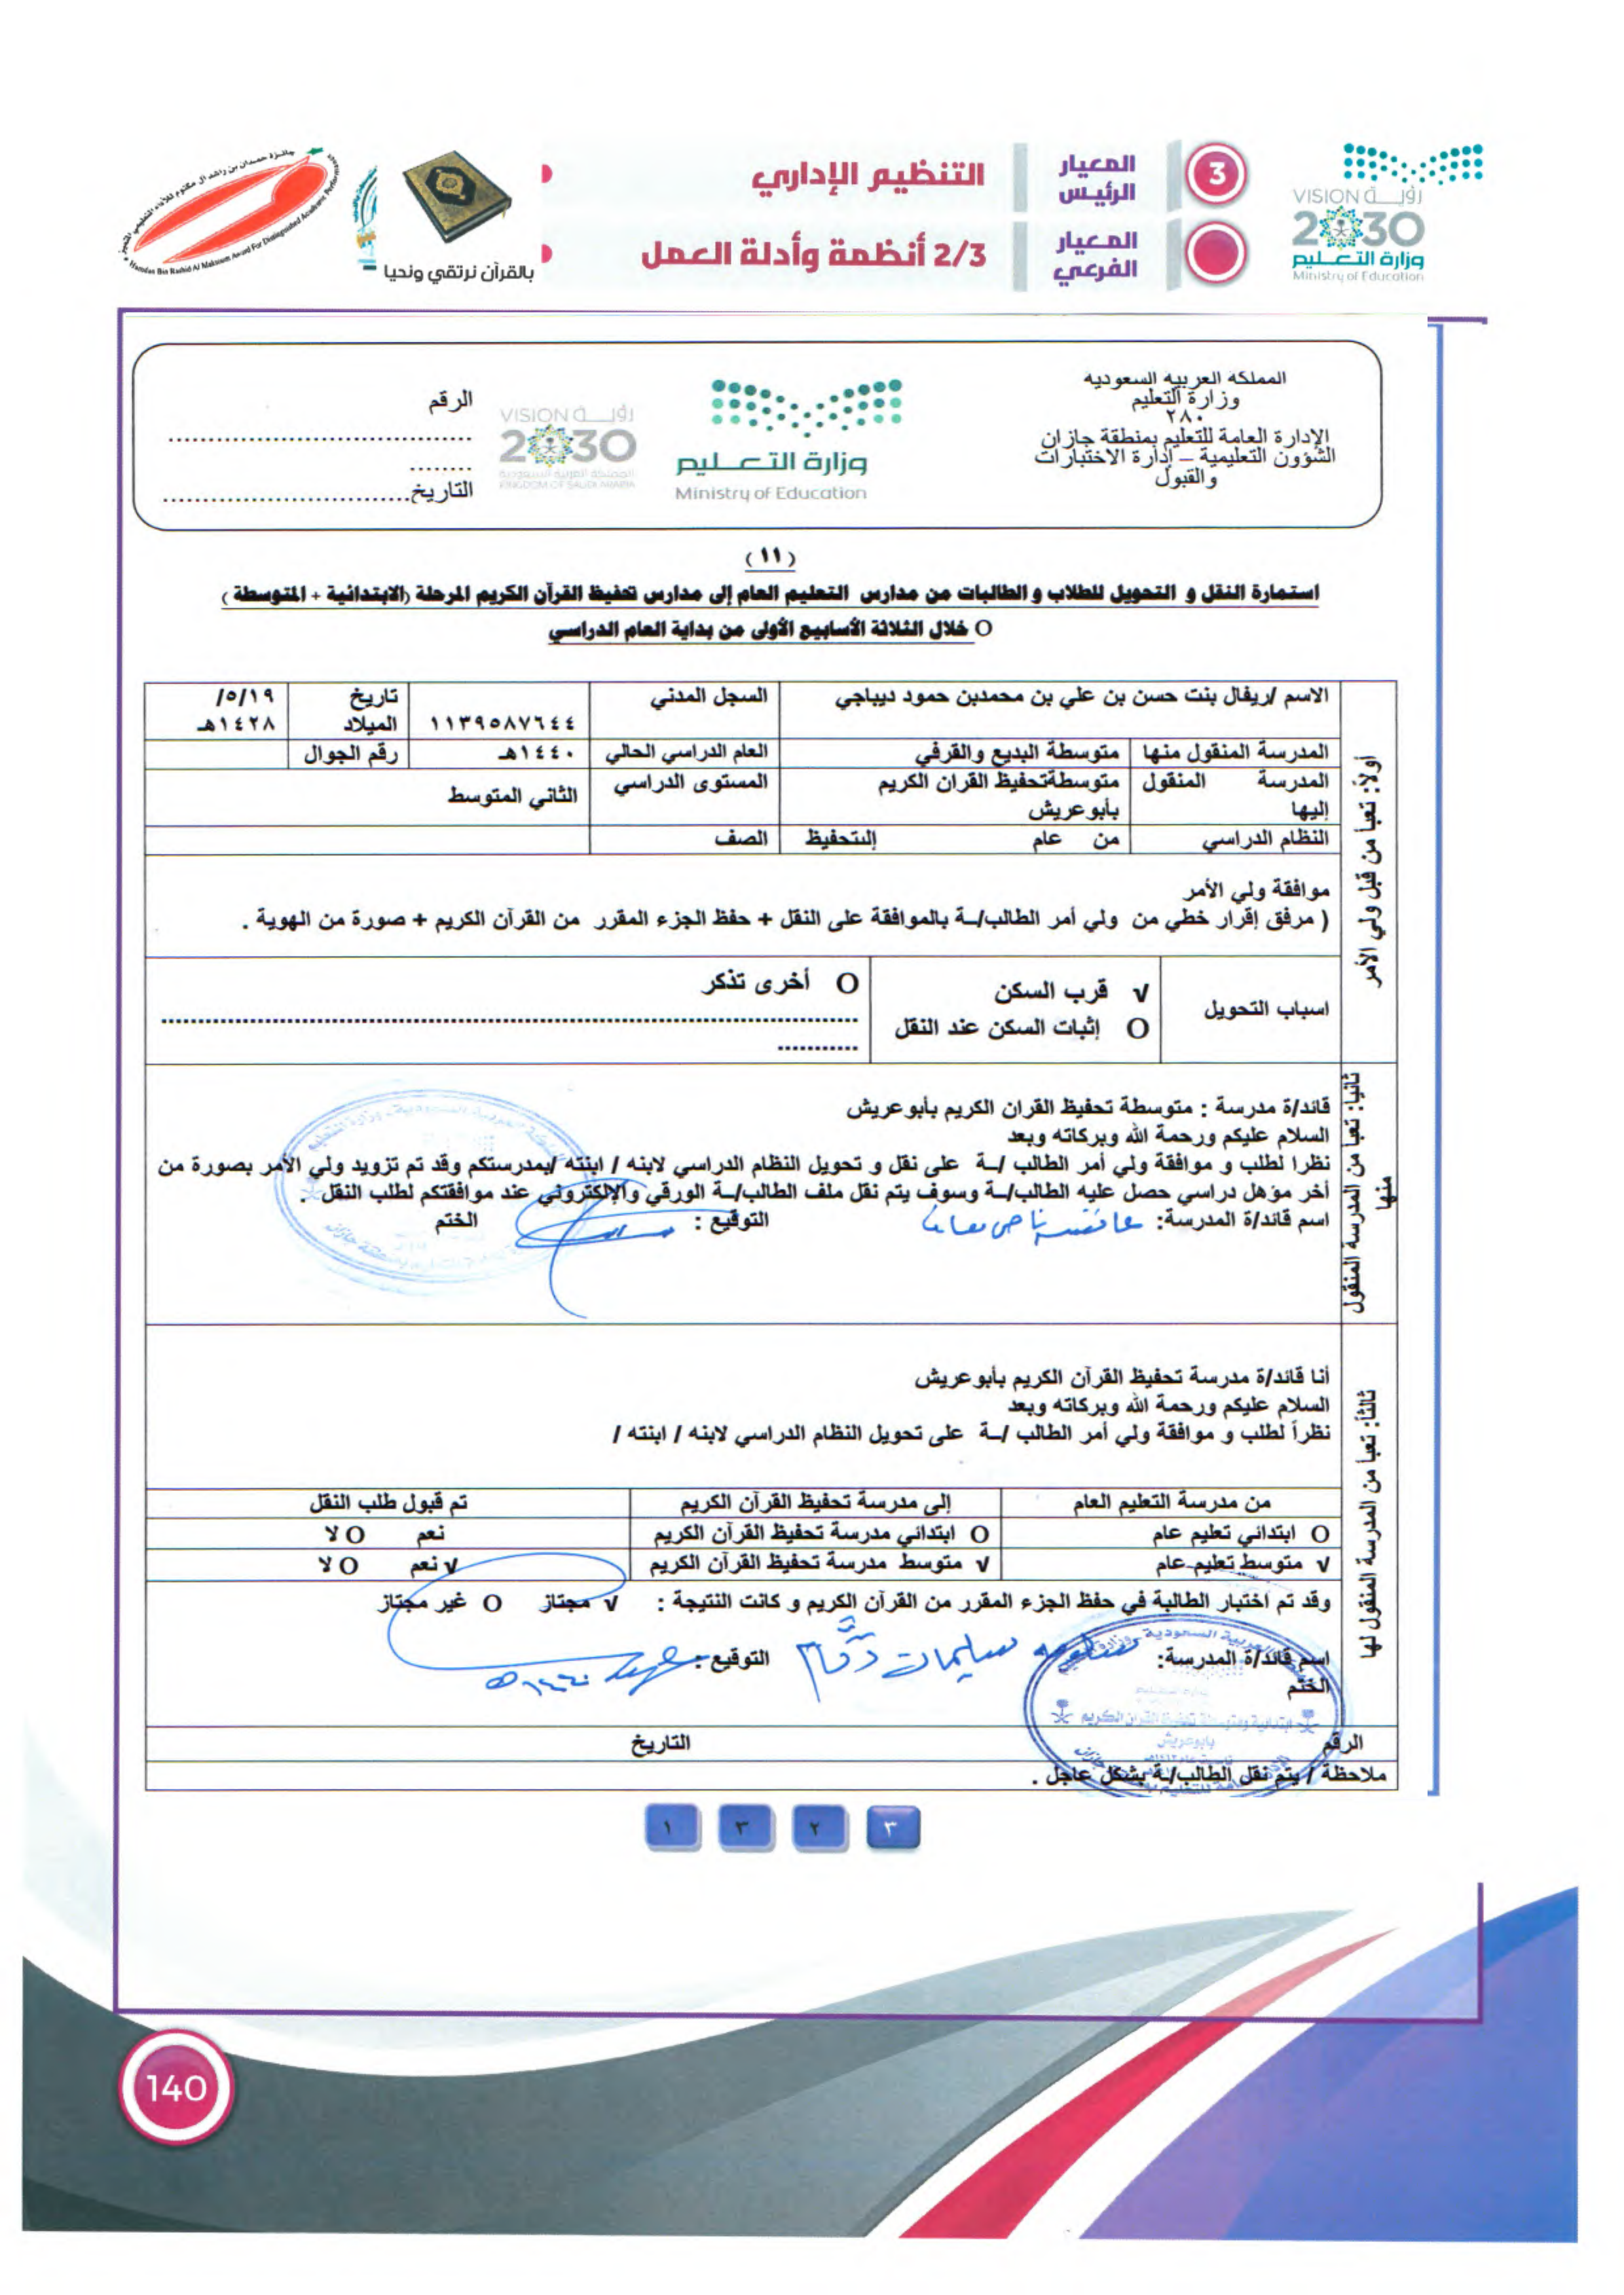 رؤيــة VISION
2030
وزارة التعـــليم
Ministry of Education
3
المعيار الرئيس
التنظيم الإداري
المعيار الفرعي
2/3 أنظمة وأدلة العمل
بالقرآن نرتقي ونحيا
جائزة حمدان بن راشد آل مكتوم للأداء التعليمي المتميز
Hamdan Bin Rashid Al Maktoum Award For Distinguished Academic Performance
المملكه العربيه السعوديه
وزارة التعليم
٢٨٠
الإدارة العامة للتعليم بمنطقة جازان
الشؤون التعليمية – إدارة الاختبارات
والقبول
وزارة التعـــليم
Ministry of Education
رؤيــة VISION
2030
المملكة العربية السعودية
KINGDOM OF SAUDI ARABIA
الرقم
التاريخ
(١١)
استمارة النقل و التحويل للطلاب و الطالبات من مدارس التعليم العام إلى مدارس تحفيظ القرآن الكريم المرحلة (الابتدائية + المتوسطة )
O خلال الثلاثة الأسابيع الأولى من بداية العام الدراسي
أولاً: تعبأ من قبل ولي الأمر
الاسم /ريفال بنت حسن بن علي بن محمدبن حمود ديباجي السجل المدني ١١٣٩٥٨٧٦٤٤ تاريخ الميلاد ٥/١٩/ ١٤٢٨هـ
المدرسة المنقول منها متوسطة البديع والقرفي العام الدراسي الحالي ١٤٤٠هـ رقم الجوال
المدرسة المنقول إليها متوسطةتحفيظ القران الكريم بأبوعريش المستوى الدراسي الثاني المتوسط
النظام الدراسي من عام إلىتحفيظ الصف
موافقة ولي الأمر
( مرفق إقرار خطي من ولي أمر الطالب/ـة بالموافقة على النقل + حفظ الجزء المقرر من القرآن الكريم + صورة من الهوية .
اسباب التحويل
√ قرب السكن
O إثبات السكن عند النقل
O أخرى تذكر
ثانيا: تعبأ من المدرسة المنقول منها
قائد/ة مدرسة : متوسطة تحفيظ القران الكريم بأبوعريش
السلام عليكم ورحمة الله وبركاته وبعد
نظرا لطلب و موافقة ولي أمر الطالب /ـة على نقل و تحويل النظام الدراسي لابنه / ابنته /بمدرستكم وقد تم تزويد ولي الأمر بصورة من
أخر مؤهل دراسي حصل عليه الطالب/ـة وسوف يتم نقل ملف الطالب/ـة الورقي والإلكتروني عند موافقتكم لطلب النقل .
اسم قائد/ة المدرسة: التوقيع : الختم
ثالثاً: تعبأ من المدرسة المنقول لها
أنا قائد/ة مدرسة تحفيظ القرآن الكريم بأبوعريش
السلام عليكم ورحمة الله وبركاته وبعد
نظراً لطلب و موافقة ولي أمر الطالب /ـة على تحويل النظام الدراسي لابنه / ابنته /
من مدرسة التعليم العام إلى مدرسة تحفيظ القرآن الكريم تم قبول طلب النقل
O ابتدائي تعليم عام O ابتدائي مدرسة تحفيظ القرآن الكريم نعم O لا
√ متوسط تعليم عام √ متوسط مدرسة تحفيظ القرآن الكريم √ نعم O لا
وقد تم اختبار الطالبة في حفظ الجزء المقرر من القرآن الكريم و كانت النتيجة : √ مجتاز O غير مجتاز
اسم قائد/ة المدرسة: التوقيع :
الختم
الرقم التاريخ
ملاحظة / يتم نقل الطالب/ـة بشكل عاجل .
٣ ٢ ٣ ١
140